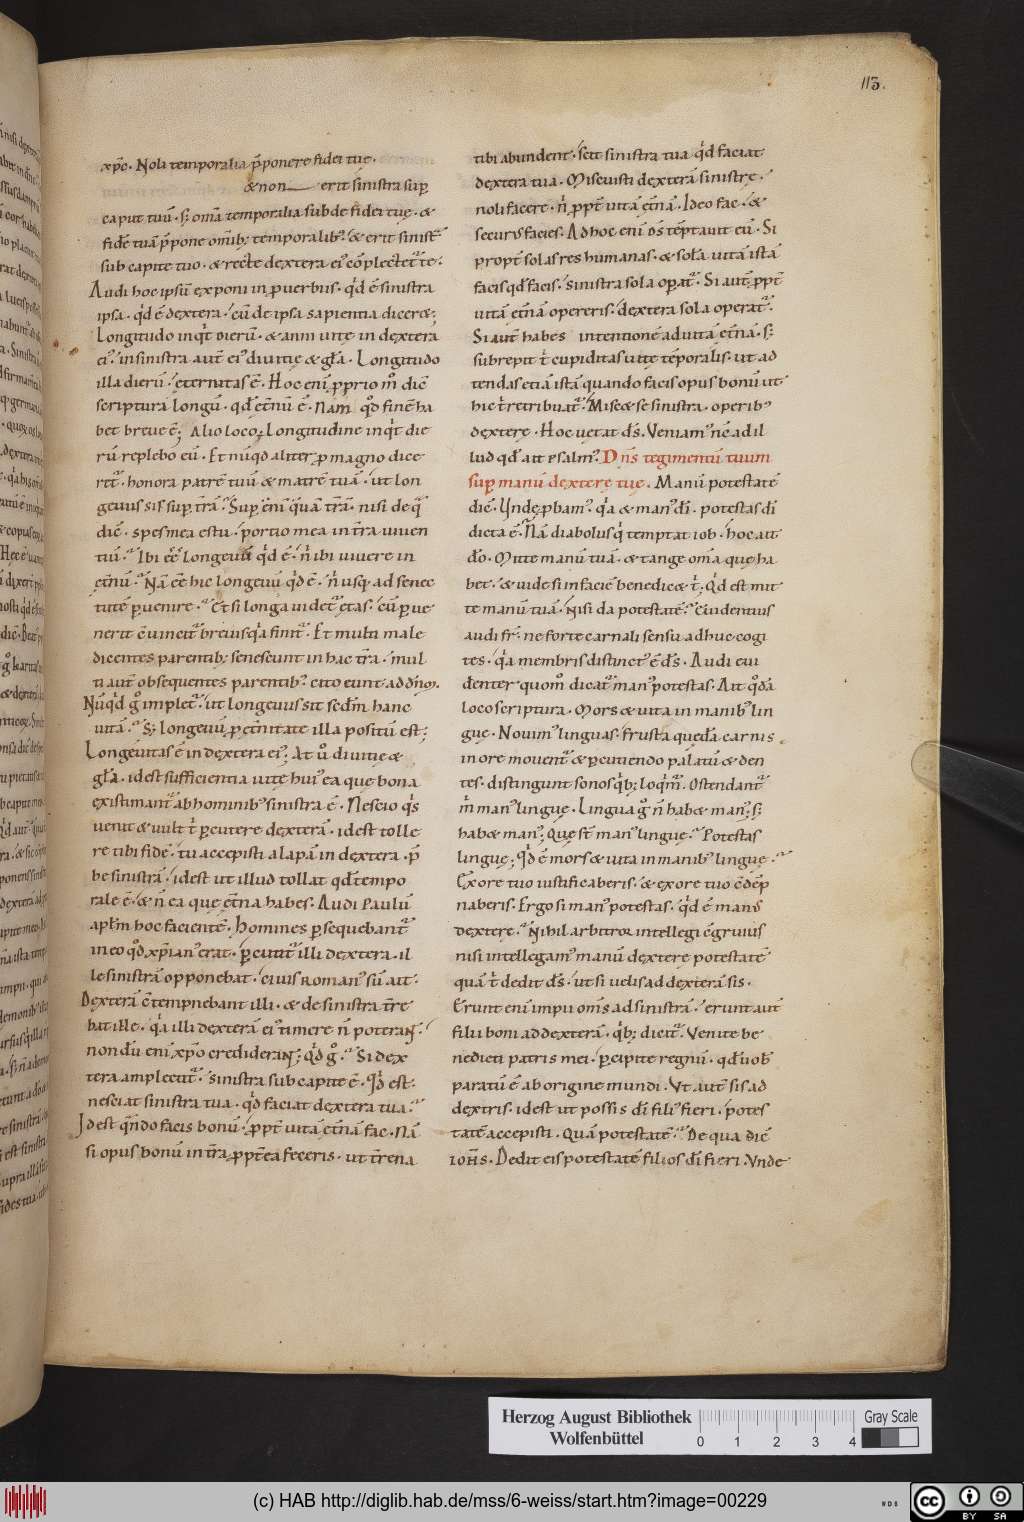 113.
xp̄c. Noli temporalia p̄ponere fidei tuę.
& non erit sinistra sup̱
caput tuū. s; om̄ia temporalia sub de fidei tuę. &
fidē tuā p̄pone om̄ib; temporalib;. & erit sinist̄
sub capite tuo. & recte dextera ei᾽ cōplectet᷑ te.
Audi hoc ipsū exponi in ꝓuerbiis. qd̄ ē sinistra
ipsa. qd̄ ē dextera. cū de ipsa sapientia dicer&.
Longitudo inquit dierū. & anni uitę in dextera
ei᾽. in sinistra aut̄ ei᾽ diuitię & gl̄a. Longitudo
illa dierū. eternitas ē. Hoc eni ꝓprio m̊ diē
scriptura longū. qd̄ et̄nū ē. Nam qd̊ finē ha
bet breue ē; Alio loco; Longitudine inq̇t die
rū replebo eū. Et nūqd aliter ꝓ magno dice
ret᷑. honora patrē tuū & matrē tuā. ut lon
geuus sis sup̱ t̄rā. Sup̱ quā t̄rā. nisi de q᷑
diē. spes mea es tu. portio mea in t̄ra uiuen
tiū. Ibi ee᷑ longeuū qd̄ ē. n̄ ibi uiuere in
et̄nū. Nā ēē hic longeuū qd̄ ē. n̄ usq; ad senec
tutē ꝑuenire. Et si longa uidet᷑ ętas. cū ꝑue
nerit cuincit᷑ breuis q̇a finit᷑. Et multi male
dicentes parentib; senescunt in hac t̄ra. mul
ti aut̄ obsequentes parentib᾽ cito eunt ad dn̄m.
Nūqd g̊ implet᷑. ut longeuus sit scd̄m hanc
uitā. S; longeuū ꝓ et̄nitate illa positū est;
Longeuitas ē in dextera ei᾽. At u̇ diuitię &
gl̄a. id est sufficientia uitę hui᾽ ea que bona
existimant᷑ ab hominib᾽ sinistra ē. Nescio q̇s
uenit & uult t̄ ꝑcutere dexterā. id est tolle
re tibi fidē. tu accepisti alapā in dextera. p̄
be sinistrā. id est ut illud tollat qd̄ tempo
rale ē. & n̄ ea que et̄na habes. Audi Paulū
apl̄m hoc facientē. Homines ꝑsequebant᷑
in eo qd̊ xp̄ian᾽ erat. ꝑcutit᷑ illi dextera. il
le sinistrā opponebat. ciuis Roman᾽ sū ait.
Dexterā cōtempnebant illi. & de sinistra t̄re
bat ille. q̇a illi dexterā ei᾽ timere n̄ poterant.
nondū eni xp̄o crediderant; qd̄ g̊. Si dex
tera amplectit᷑. sinistra sub capite ē. qd̄ est.
nesciat sinistra tua. qd̄ faciat dextera tua.
Id est qn̄do facis bonū. ꝓpt̄ uitā et̄nā fac. Nā
si opus bonū in t̄ra ꝓpt̄ea feceris. ut t̄rena
tibi abundent. scit sinistra tua qd̄ faciat
dextera tua. Miscuisti dexterā sinistrę.
noli facere. n̄ ꝓpt̄ uitā et̄nā. Ideo fac. &
securus facies. Ad hoc eni os̄ tēptauit eū. Si
propt̄ solas res humanas. & sol̄a uitā istā
facis qd̄ facis. sinistra sola oꝑat᷑. Si aut̄ ꝓpt̄
uitā et̄nā opereris. dextera sola operat᷑.
Si aut̄ habes intentionē ad uitā et̄nā. s;
subrepit t̄ cupiditas uitę tēporalis. ut ad
tendas etiā istā quando facis opus bonū ut
hic t̄ retribuat᷑. Misc& se sinistra. operib᾽
dexterę. Hoc uetat ds̄. Veniam᾽ nē ad il
lud qd̄ ait psalm᾽. Dn̄s tegimentū tuum
sup̱ manū dexterę tuę. Manū potestatē
diē. Unde ꝓbam᾽. q̇a & man᾽ dī. potestas dī
dicta ē. Nā diabolus q̇ temptat iob. hoc ait
dō. Mitte manū tuā. & tange om̄a quę ha
bet. & uide si in faciē benedic& t̄. Qd̄ est mit
te manū tuā. Nisi da potestatē. Euidentius
audi fr̄. ne forte carnali sensu adhuc cogi
tes. q̇a membris distinct᾽ ē ds̄. Audi eui
denter quom̊ dicat᷑ man᾽ potestas. Ait qd̊ā
loco scriptura. Mors & uita in manib᾽ lin
guę. Nouim᾽ linguas. frusta quedā carnis
in ore mouent᷑ & ꝑcutiendo palatū & den
tes. distingunt sonos q̇b; loq̇m᷑. Ostendant᷑
m̄ man᾽ linguę. Lingua g̊ n̄ hab& man᾽; s;
hab& man᾽; Quę st̄ man᾽ linguę. Potestas
linguę; Qd̄ ē mors & uita in manib᾽ linguę.
Ex ore tuo iustificaberis. & ex ore tuo cōdēp
naberis. Ergo si man᾽ potestas. qd̄ ē manus
dexterę. Nihil arbitror intellegi cōgruius
nisi intellegam᾽ manū dexterę potestatē
quā t̄ dedit ds̄. ut si uelis ad dexterā sis.
Erunt eni impii om̄s ad sinistrā. erunt aut̄
filii boni ad dexterā. q̇b; dicit᷑. Venite be
nedicti patris mei. ꝑcipite regnū. qd̄ uob᾽
paratū ē ab origine mundi. Vt aut̄ sis ad
dextris. id est ut possis dī fili᾽ fieri. potes
tatē accepisti. Quā potestatē. De qua diē
ioh̄s. Dedit eis potestatē filios dī fieri. Vnde
Herzog August Bibliothek
Wolfenbüttel
0 1 2 3 4
Gray Scale
(c) HAB http://diglib.hab.de/mss/6-weiss/start.htm?image=00229
WDB
cc BY SA